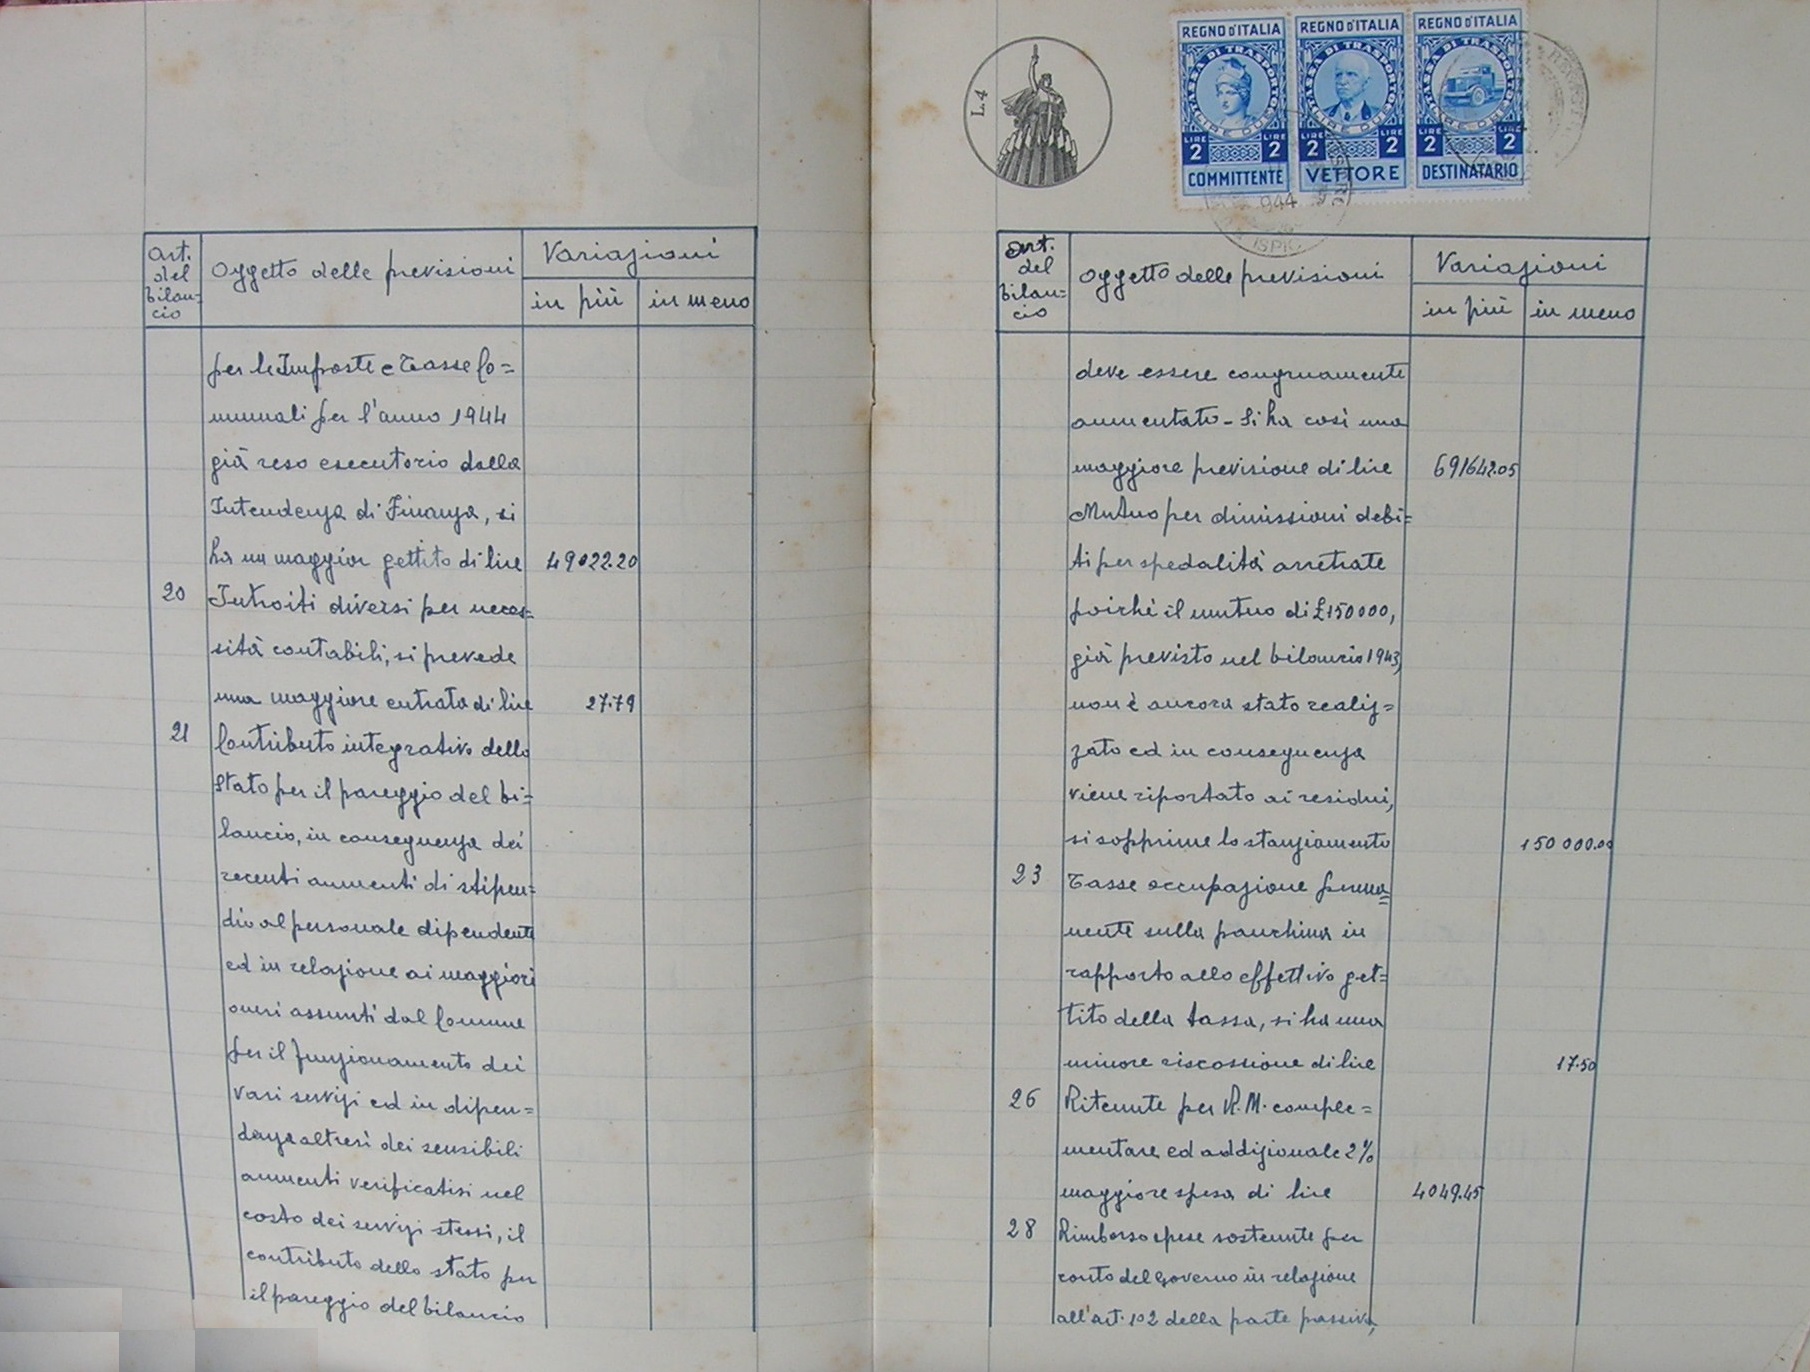 Art.
del
bilan-
cio
Oggetto delle previsioni
Variazioni
in più
in meno
per le Imposte e Tasse Co=
munali per l'anno 1944
già reso esecutorio dalla
Intendenza di Finanza, si
ha un maggior gettito di lire 49022.20
20 Introiti diversi per neces=
sità contabili, si prevede
una maggiore entrata di lire 27.79
21 Contributo integrativo dello
Stato per il pareggio del bi=
lancio, in conseguenza dei
recenti aumenti di stipen=
dio al personale dipendente
ed in relazione ai maggiori
oneri assunti dal Comune
per il funzionamento dei
vari servizi ed in dipen=
denza altresì dei sensibili
aumenti verificatisi nel
costo dei servizi stessi, il
contributo dello stato per
il pareggio del bilancio
L.4
REGNO D'ITALIA
TASSA DI TRASPORTO
LIRE DUE
LIRE 2
LIRE 2
COMMITTENTE
REGNO D'ITALIA
TASSA DI TRASPORTO
LIRE DUE
LIRE 2
LIRE 2
VETTORE
REGNO D'ITALIA
TASSA DI TRASPORTO
LIRE DUE
LIRE 2
LIRE 2
DESTINATARIO
944
ISPIC
Art.
del
bilan=
cio
Oggetto delle previsioni
Variazioni
in più
in meno
deve essere congruamente
aumentato - Si ha così una
maggiore previsione di lire 691642.05
Mutuo per dimissioni debi=
ti per spedalità arretrate
poichè il mutuo di £150000,
già previsto nel bilancio 1943,
non è ancora stato realiz=
zato ed in conseguenza
viene riportato ai residui,
si sopprime lo stanziamento 150 000.00
23 Tasse occupazione perma=
nente sulla panchina in
rapporto allo effettivo get=
tito della tassa, si ha una
minore riscossione di lire 17.50
26 Ritenute per R.M. comple=
mentare ed addizionale 2%
maggiore spesa di lire 4049.45
28 Rimborso spese sostenute per
conto del Governo in relazione
all'art. 102 della parte passiva,